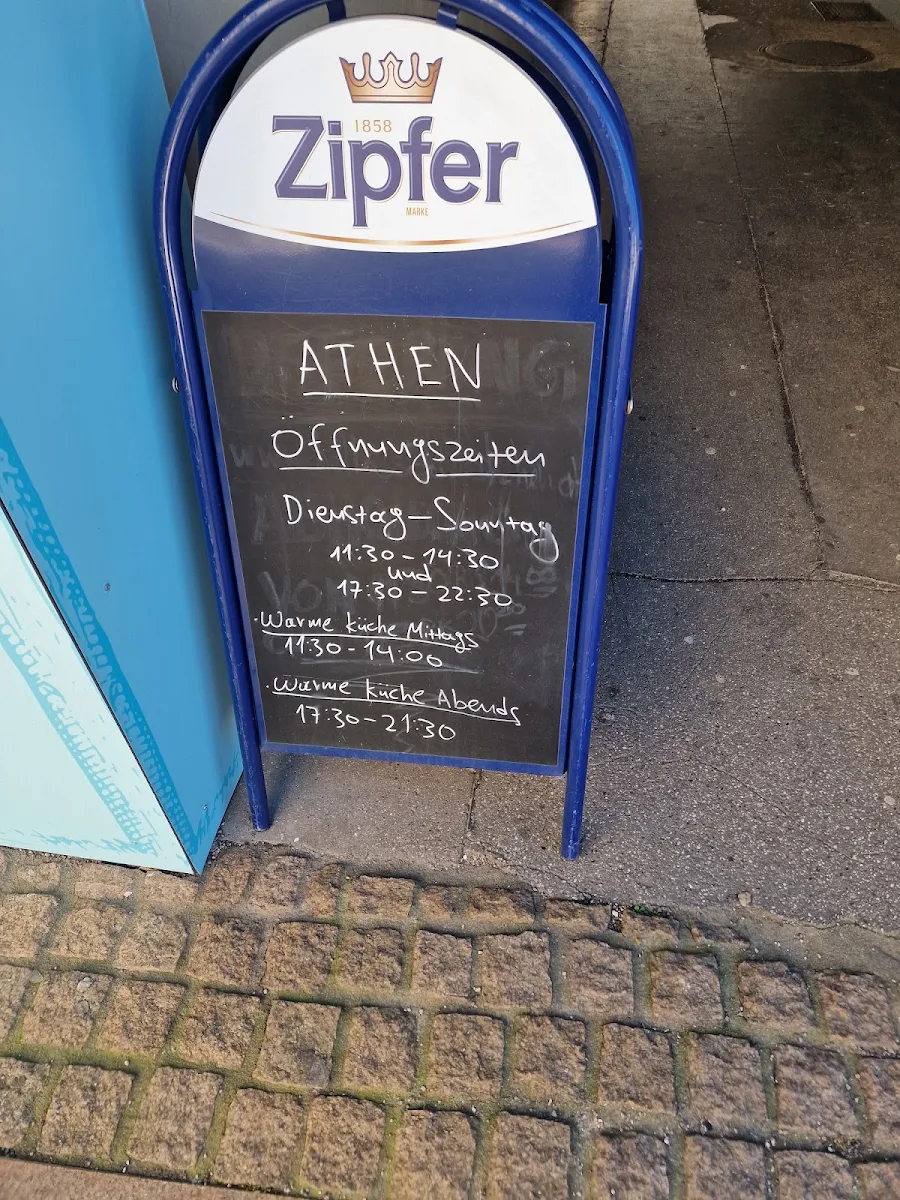 1858
Zipfer
MARKE
ATHEN
Öffnungszeiten
Dienstag – Sonntag
11:30 – 14:30
und
17:30 – 22:30
·Warme küche Mittags
11:30 - 14:00
·Warme küche Abends
17:30 – 21:30